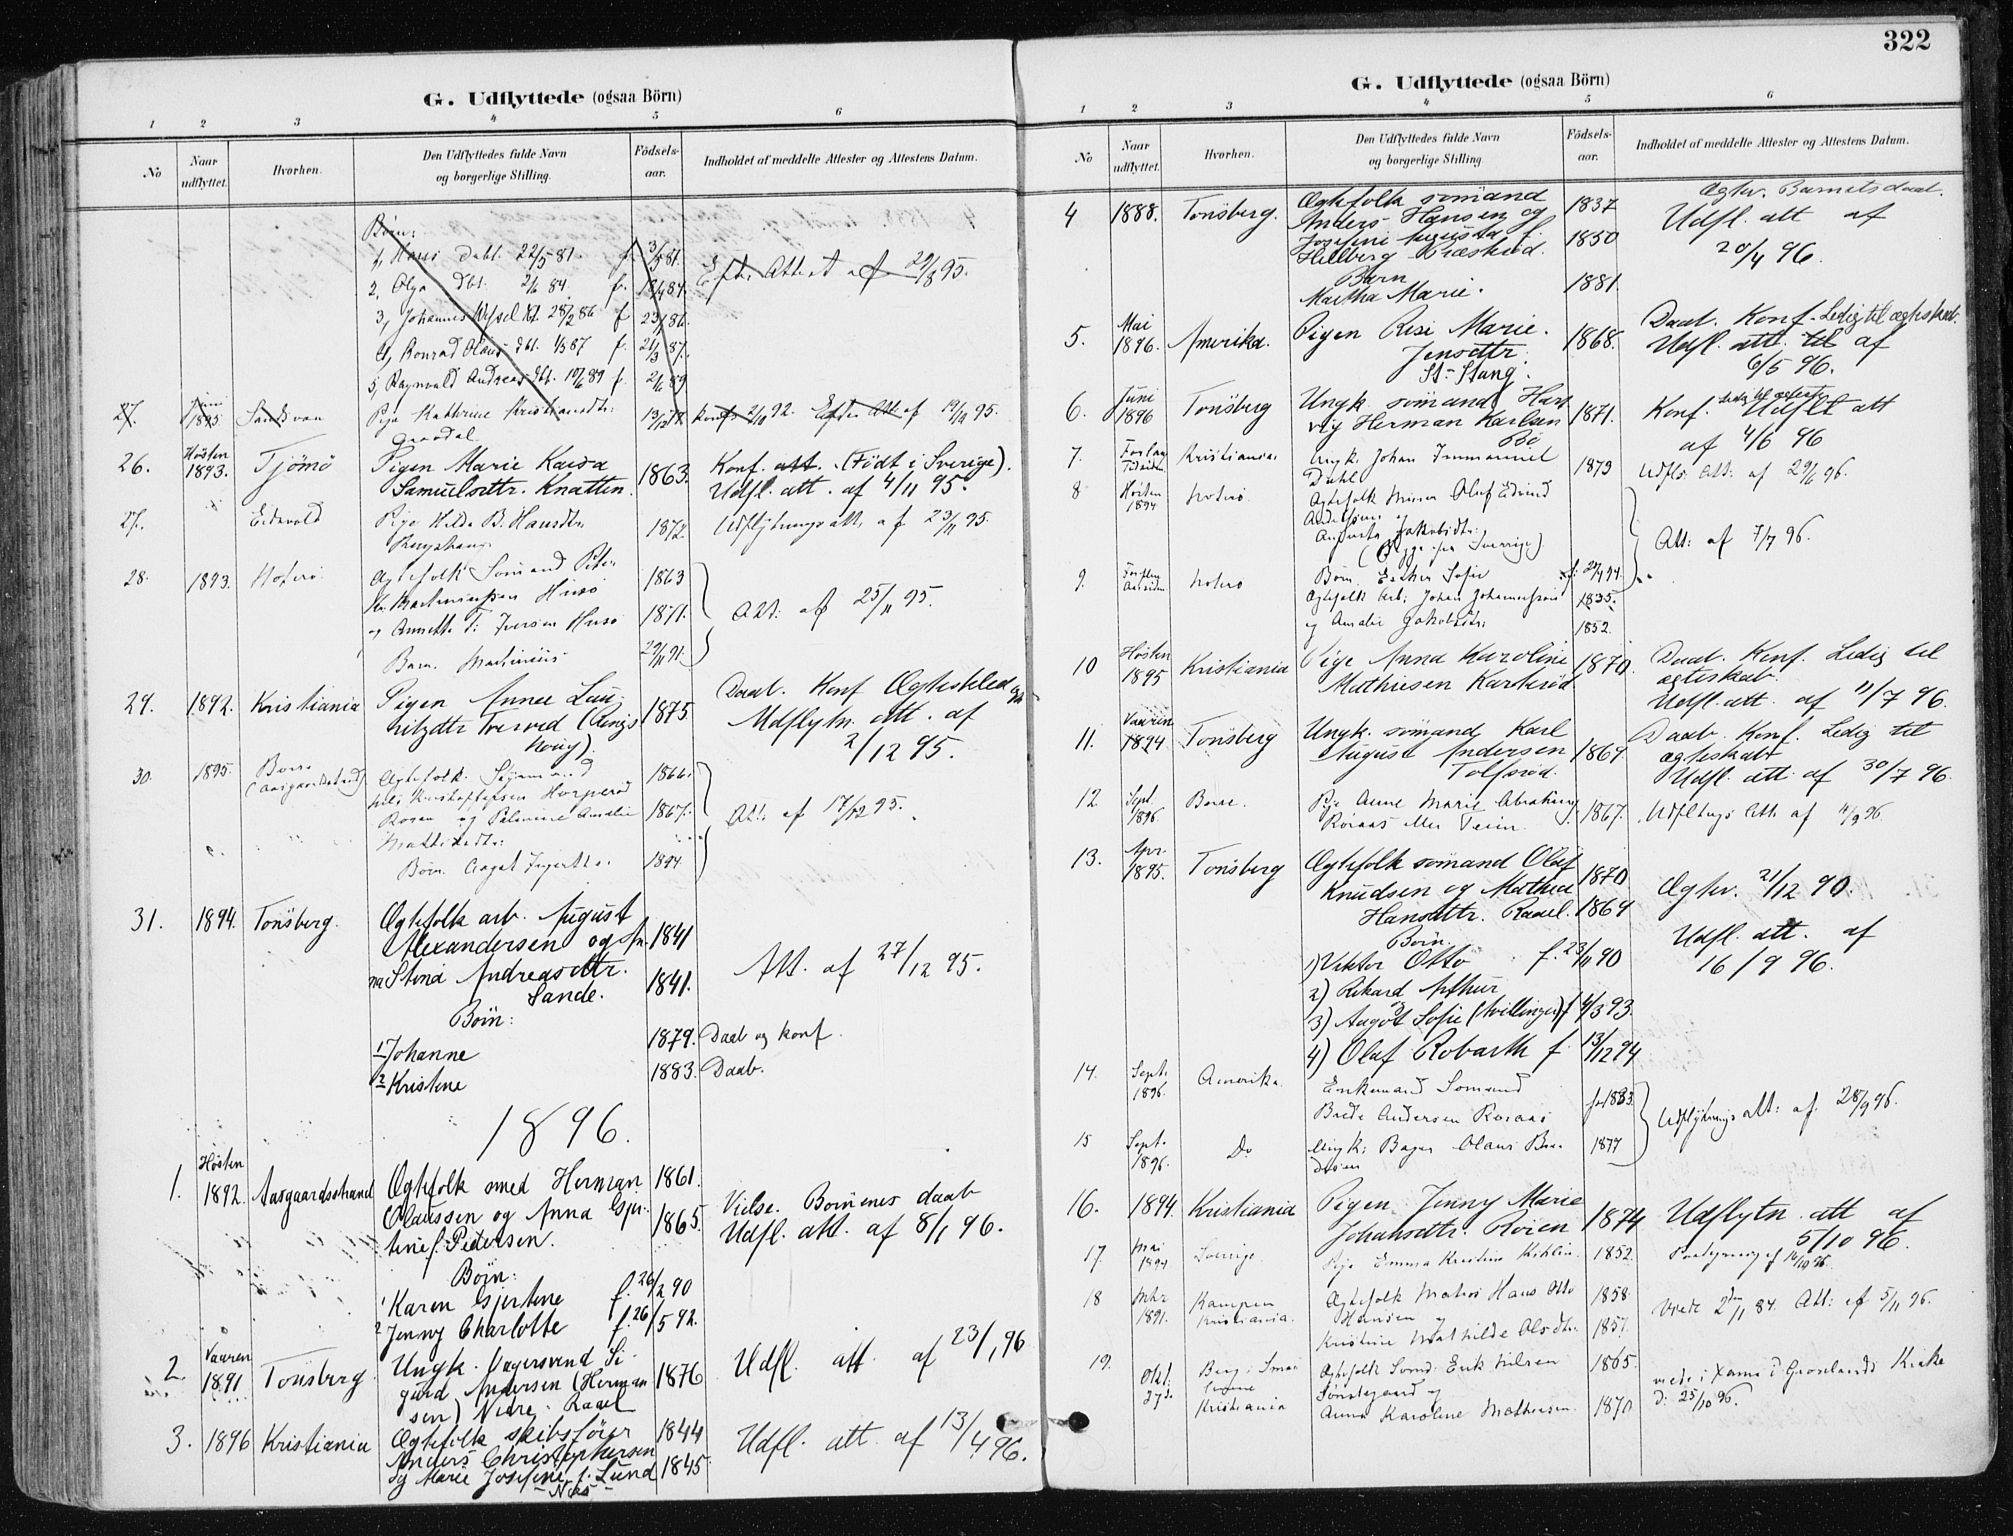 322
G. Udflyttede (ogsaa Börn)
1 2 3 4 5 6
No
Naar udflyttet.
Hvorhen.
Den Udflyttedes fulde Navn og borgerlige Stilling.
Födsels-aar.
Indholdet af meddelte Attester og Attestens Datum.
Börn:
1, Hans Døbt. 22/5 81. f. 3/5 81.
2, Olga dbt. f.
Efter Attest af 29/8 95.
3, Johannes dbt. 28/2 86 f
4, Konrad Olaus dbt. 87 f.
5, Ragnvald Andreas dbt. 10/6 89 f. 2/6 89
27. Juni 1895 Sandsvær Pige Kathrine Kristiansdtr. 13/12 72 konf. 2/10 92. Efter Att af 19/9 95.
26. Høsten 1893. Tjömö Pigen Marie Karda 1863. Konf. att. (Födt i Sverige).
Samuelsdttr. Knatten. Udfl. att. af 4/11 95.
27. Eidsvold Pige Hilda B. Hansdtr 1872. Udflytnings att. af 23/11 95.
28. 1893. Noterö Ægtefolk Sömand Peter 1863
Husö
og Annette F. Iversen Husö 1871. Att: af 25/11 95.
Barn. Martinius 29/11 91.
29. 1892. Kristiania Pigen Anna Lau- 1875 Daab. Konf Ægteskled
ritzdtr Tverved (Rings Udflytn. att. af
houg). 2/12 95.
30. 1895. Borre (Aasgaardstrand) Ægtefolk. Styrmand 1866.
Horperöd
Rosen og Palmine Amalie 1867. Att. af 17/12 95.
Mathisdtr:
Børn. Aagot Ingertha. 1894.
31. 1894. Tönsberg. Ægtefolk arb. August
Alexandersen og An- 1841
na Stina Andreasdttr. 1841. Att. af 27/12 95.
Sande.
Börn:
1 Johanne 1879. Daab og konf.
2 Kristine 1883. Daab.
1896.
1. Høsten 1892. Aasgaardsstrand Ægtefolk smed Herman 1861.
Olaussen og Anna Gjer- 1865. Vielse. Börnenes daab
tine f. Pedersen. Udfl. att. af 8/1 96.
Börn:
1 Karen Gjertine f. 26/2 90
2 Jenny Charlotte f. 26/5 92.
2. Vaaren 1891 Tönsberg Ungk. Bagersvend Si- 1876 Udfl. att. af 23/1 96
gurd Andersen (Herman
sen) Nedre Raael
3. 1896 Kristiania Ægtefolk skibsförer 1844 Udfl. att. af 13/4 96.
Anders Christophersen
og Marie Josefine f. Lund 1845
- Næs -
G. Udflyttede (ogsaa Börn)
1 2 3 4 5 6
No
Naar udflyttet.
Hvorhen.
Den Udflyttedes fulde Navn og borgerlige Stilling.
Födsels-aar.
Indholdet af meddelte Attester og Attestens Datum.
4 1888. Tönsberg. Ægtefolk sömand 1837 Ægtev. Barnets daab.
Anders Hansen og Udfl. att af
Josefine Augusta f. 1850 20/4 96.
Hellberg Præsteröd.
Barn
Martha Marie. 1881.
5. Mai 1896. Amerika. Pigen Resi Marie. 1868. Daab. Konf. Ledig til ægteskab.
Jensdttr. Udfl. att. til af
St. Stang. 6/5 96.
6. Juni 1896 Tönsberg Ungk. sömand Hart 1871. Konf. Ledig til ægtesk. Udflt att
vig Herman Karlsen af 4/6 96
Bö
7. Kristiania Ungk. Johan Immanuel 1873 Udfl. Att: af 29/6 96.
Dahl
8 Høsten 1894 Noterö Ægtefolk Murer Olaf Edvind
Andersen og
Augusta Jakobsdtr: Att: af 7/7 96.
(Begge fra Sverrige)
Børn Esther Sofie f: 29/4 94.
9. Noterö Ægtefolk Arb: Johan Johannessen 1835.
og Amalie Jakobsdtr: 1852.
10 Høsten 1895 Kristiania Pige Anna Karoline 1870. Daab. Konf. Ledig til
Mathisen Karlsröd ægteskab.
Udfl. att. af 11/7 96.
11. Vaaren 1894 Tönsberg Ungk. sömand Karl Daab. Konf. Ledig til
August Andersen 1869. ægteskab
Tolfsröd. Udfl. att. af 30/7 96.
12. Sept. 1896. Borre. Pige Anne Marie 1867. Udfltngs Att. af 11/9 96.
Roraas
13. Apr. 1895. Tönsberg Ægtefolk sömand Olaf 1870 Ægtev. 21/12 90.
Knudsen og Mathea
Hansdttr. Raael. 1869 Udfl. att. af
Börn. 16/9 96.
1) Viktor Otto f. 23/11 90
2) Rikard Arthur
og
3) Aagot Sofie (tvillinger) f 4/3 93.
4) Olaf Robarth f 13/12 94
14. Sept. 1896. Amerika. Enkemand Sömand
Brede Andersen Roraas Udflytnings att: af 28/9 96.
15 Sept. 1896. Do Ungk: Bager Olaus Bre- 1877
desen
16. 1894. Kristiania Pigen Jenny Marie 1874 Udflytn. att af
Johansdttr. Roien 5/10 96.
17 Mai 1894 Sverige. Pige Emma Kristine 1852. af 14/10 96.
18 1891. Kampen Kristiania. Ægtefolk Matros Hans Otto 1858. Viede 2den/1 84. Att: af 5/11 96.
Hansen og
Kristine Mathilde Olsdtr. 1857.
19. Okt: Kristiania Ægtefolk Sömd: Erik Nilsen 1865. viede i Xania i Grønlands Kirke
og d: 25/10 96.
Anna Karoline Mathisen. 1870